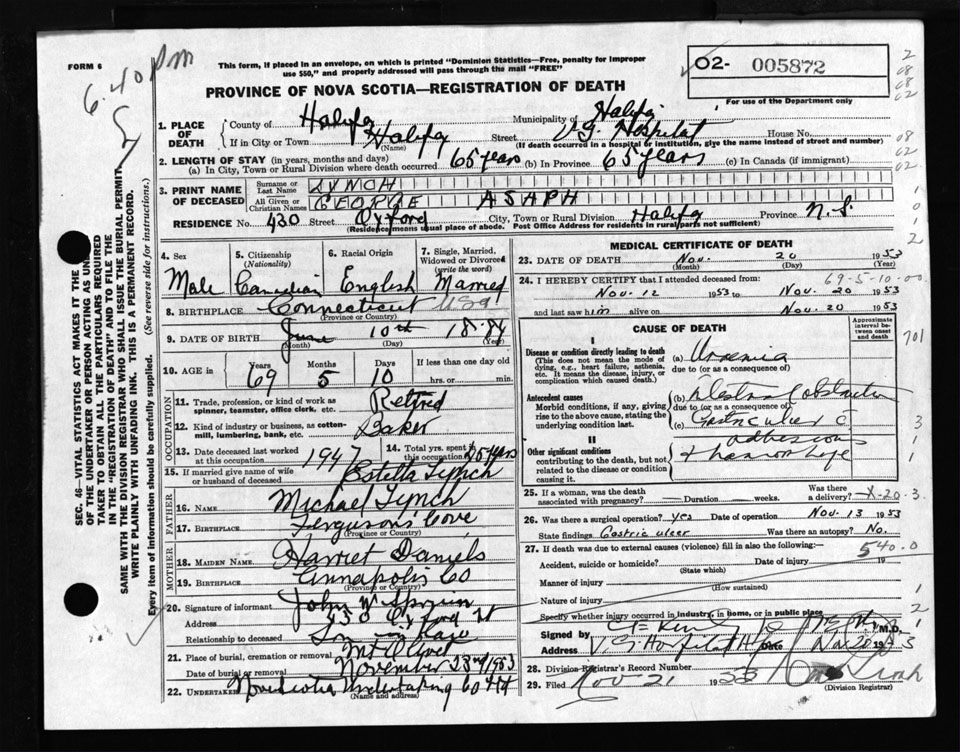 6.40 pm
FORM 6
This form, if placed in an envelope, on which is printed "Dominion Statistics—Free, penalty for improper
use $50," and properly addressed will pass through the mail "FREE"
O2- 005872
For use of the Department only
PROVINCE OF NOVA SCOTIA—REGISTRATION OF DEATH
1. PLACE OF DEATH
County of Halifax Municipality of Halifax
If in City or Town Halifax Street V.G. Hospital House No.
(Name) (If death occurred in a hospital or institution, give the name instead of street and number)
2. LENGTH OF STAY (in years, months and days)
(a) In City, Town or Rural Division where death occurred 65 years (b) In Province 65 years (c) In Canada (if immigrant)
3. PRINT NAME OF DECEASED
Surname or Last Name LYNCH
All Given or Christian Names GEORGE ASAPH
RESIDENCE No. 430 Street Oxford City, Town or Rural Division Halifax Province N.S.
(Residence means usual place of abode. Post Office Address for residents in rural parts not sufficient)
4. Sex Male
5. Citizenship (Nationality) Canadian
6. Racial Origin English
7. Single, Married, Widowed or Divorced (write the word) Married
8. BIRTHPLACE Connecticut USA
(Province or Country)
9. DATE OF BIRTH June 10th 1884
(Month) (Day) (Year)
10. AGE in Years 69 Months 5 Days 10 If less than one day old hrs. or min.
OCCUPATION
11. Trade, profession, or kind of work as spinner, teamster, office clerk, etc. Retired
12. Kind of industry or business, as cotton-mill, lumbering, bank, etc. Baker
13. Date deceased last worked at this occupation 1947
14. Total yrs. spent in this occupation 25 years
15. If married give name of wife or husband of deceased Estella Lynch
FATHER
16. Name Michael Lynch
17. Birthplace Ferguson's Cove
(Province or Country)
MOTHER
18. Maiden Name Harriet Daniels
19. Birthplace Annapolis Co
(Province or Country)
20. Signature of informant John W
Address 430 Oxford St
Relationship to deceased Son in law
21. Place of burial, cremation or removal Mt Olivet
Date of burial or removal November 23rd 1953
22. Undertaker Nova Scotia Undertaking Co Ltd
(Name and address)
MEDICAL CERTIFICATE OF DEATH
23. DATE OF DEATH Nov. 20 1953
(Month) (Day) (Year)
69-5-10-00
24. I HEREBY CERTIFY that I attended deceased from:
Nov. 12 1953 to Nov. 20 1953
and last saw him alive on Nov. 20 1953
CAUSE OF DEATH
Approximate interval between onset and death
I
Disease or condition directly leading to death (a) Uraemia
(This does not mean the mode of dying, e.g., heart failure, asthenia, etc. It means the disease, injury, or complication which caused death.)
due to (or as a consequence of)
Antecedent causes
Morbid conditions, if any, giving rise to the above cause, stating the underlying condition last.
(b) obstruction
due to (or as a consequence of)
(c) Gastric ulcer c adhesions
II
Other significant conditions
contributing to the death, but not related to the disease or condition causing it.
+ hemorrhage
25. If a woman, was the death associated with pregnancy? — Duration weeks. Was there a delivery? X-20-3
26. Was there a surgical operation? Yes Date of operation Nov. 13 1953
State findings Gastric ulcer Was there an autopsy? No.
27. If death was due to external causes (violence) fill in also the following:— 540.0
Accident, suicide or homicide? Date of injury 19
(State which)
Manner of injury
(How sustained)
Nature of injury
Specify whether injury occurred in industry, in home, or in public place
Signed by M.D.
Address V.G. Hospital Hfx Date Nov 20 1953
28. Division Registrar's Record Number
29. Filed Nov 21 1953
(Division Registrar)
SEC. 46—VITAL STATISTICS ACT MAKES IT THE
OF THE UNDERTAKER OR PERSON ACTING AS UND
TAKER TO OBTAIN ALL THE PARTICULARS REQUIRED
IN THE "REGISTRATION OF DEATH" AND TO FILE THE
SAME WITH THE DIVISION REGISTRAR WHO SHALL ISSUE THE BURIAL PERMIT.
WRITE PLAINLY WITH UNFADING INK. THIS IS A PERMANENT RECORD.
Every item of information should be carefully supplied. (See reverse side for instructions.)
2
08
08
02
08
02
02
1
0
1
2
701
3
3
1
1
2
1
3